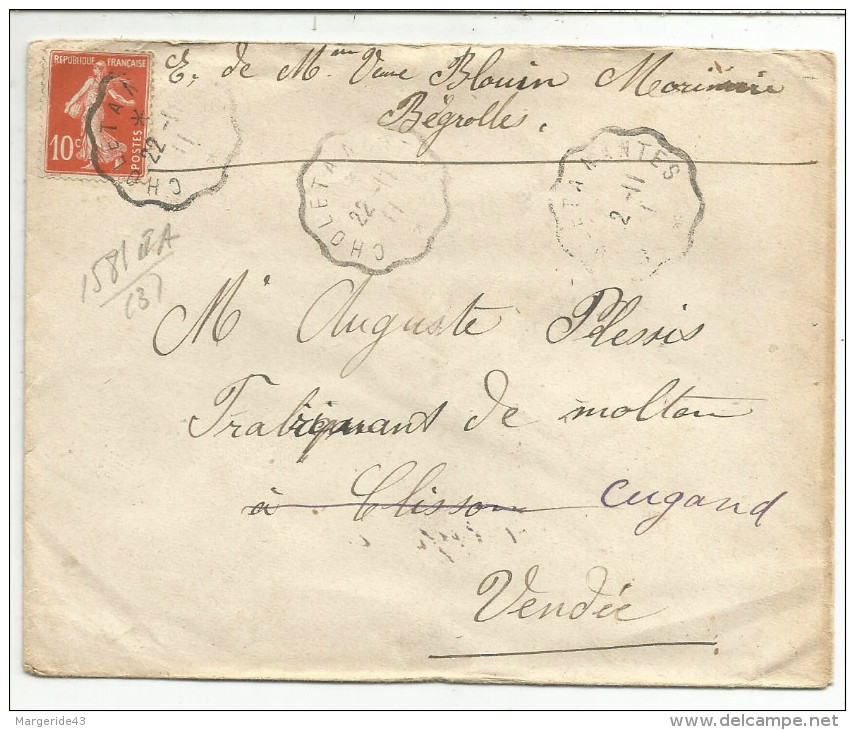 REPUBLIQUE FRANÇAISE
10c
POSTES
E. de Mme Veuve Blouin
Bégrolles.
CHOLET A
22-11
11
CHOLET A
22-11
11
A NANTES
2 -11
1581
M' Auguste Plessis
Fabriquant de molton
à Clisson Cugand
Vendée
Margeride43
www.delcampe.net